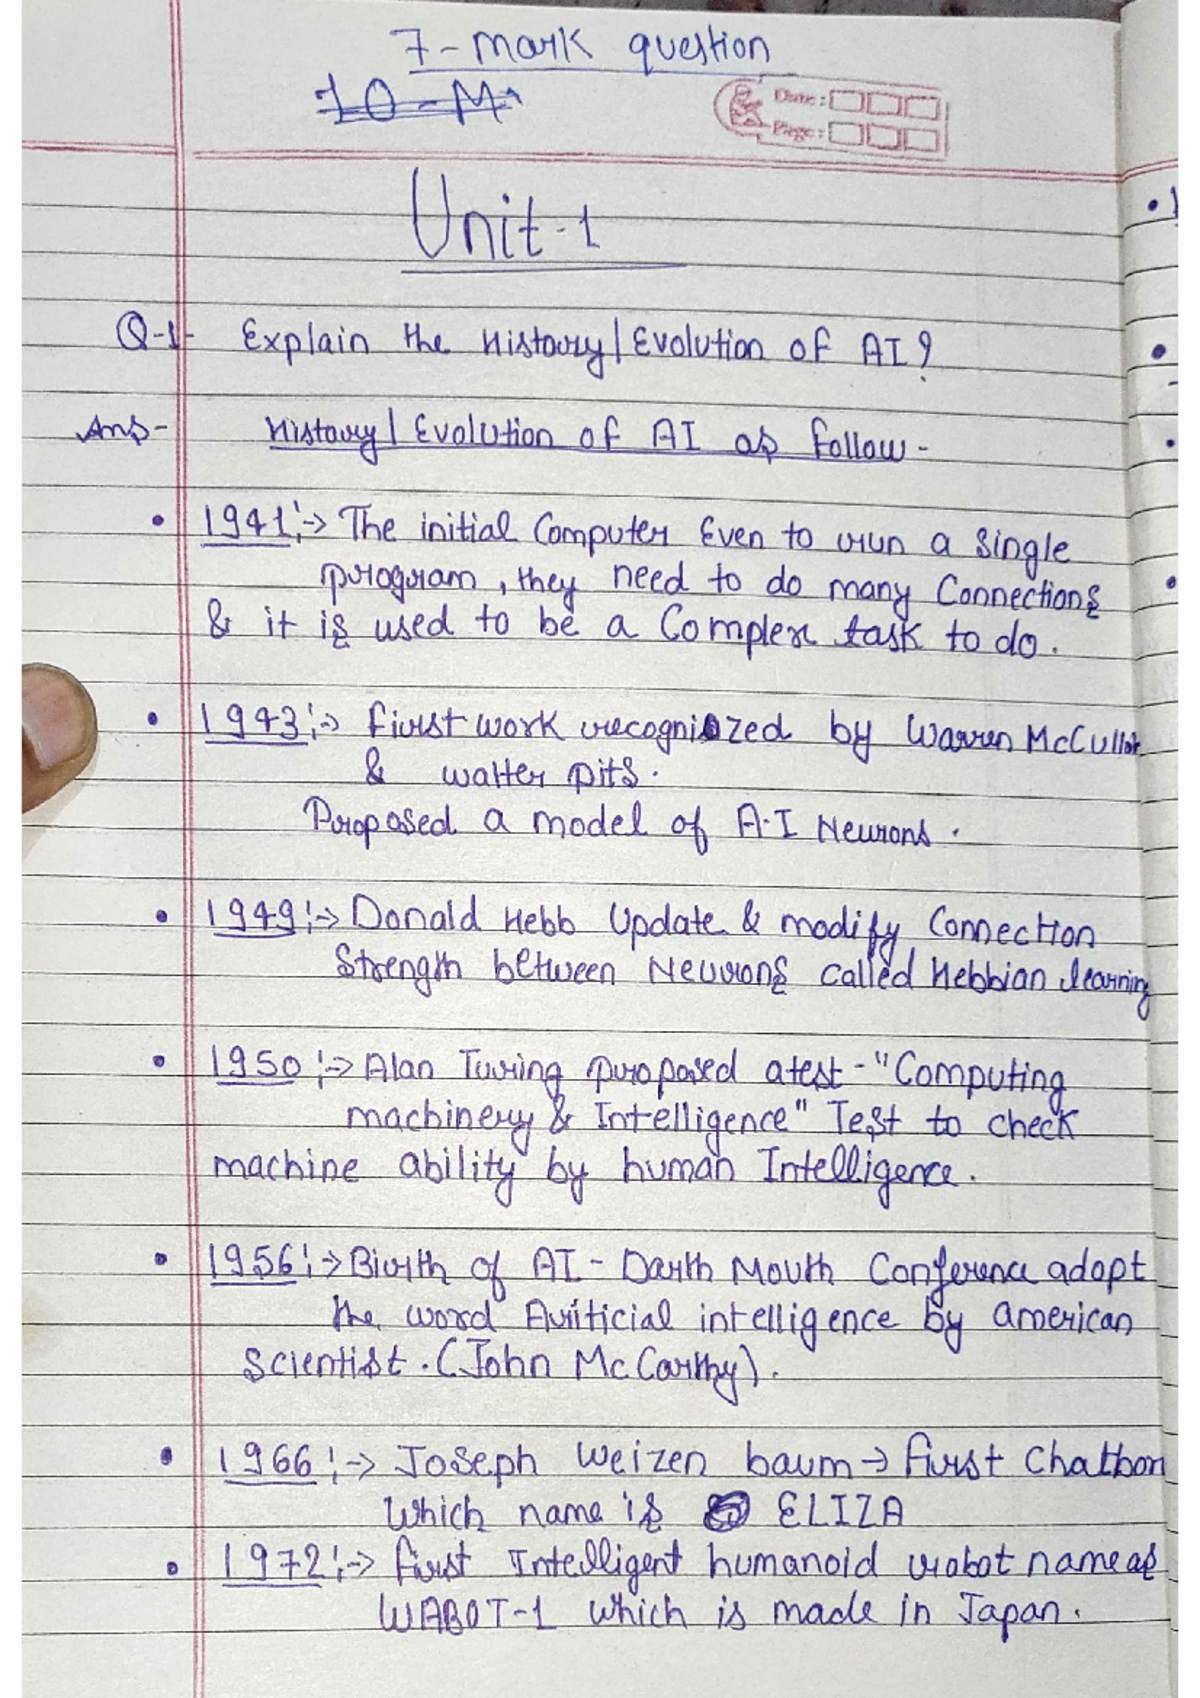 7-mark question
10-M
Date:
Page:
Unit-1
Q-1- Explain the History/Evolution of AI?
Ans- History/Evolution of AI as follow-
• 1941:→ The initial Computer Even to run a Single
program, they need to do many Connections
& it is used to be a Complex task to do.
• 1943:→ First work recognized by Warren McCulloh
& walter pits.
Proposed a model of A.I Neurons.
• 1949:→ Donald Hebb Update & modify Connection
Strength between Neurons called Hebbian learning
• 1950:→ Alan Turing proposed a test-"Computing
machinery & Intelligence" Test to check
machine ability by human Intelligence.
• 1956:→ Birth of AI- Darth Mouth Conference adopt
the word Artificial intelligence by american
Scientist. (John McCarthy).
• 1966:→ Joseph Weizen baum → first Chatbon
Which name is ELIZA
• 1972:→ first Intelligent humanoid robot name as
WABOT-1 which is made in Japan.